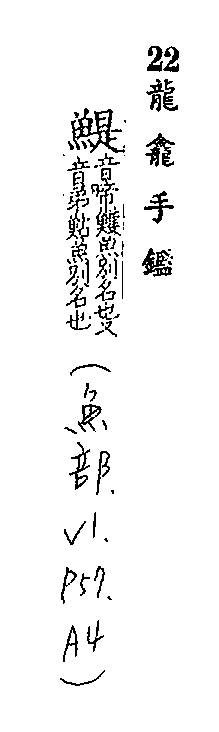 22龍龕手鑑
鯷音啼鱯魚別名也又
音弟鮎魚別名也
(魚部. V1. P57. A4)